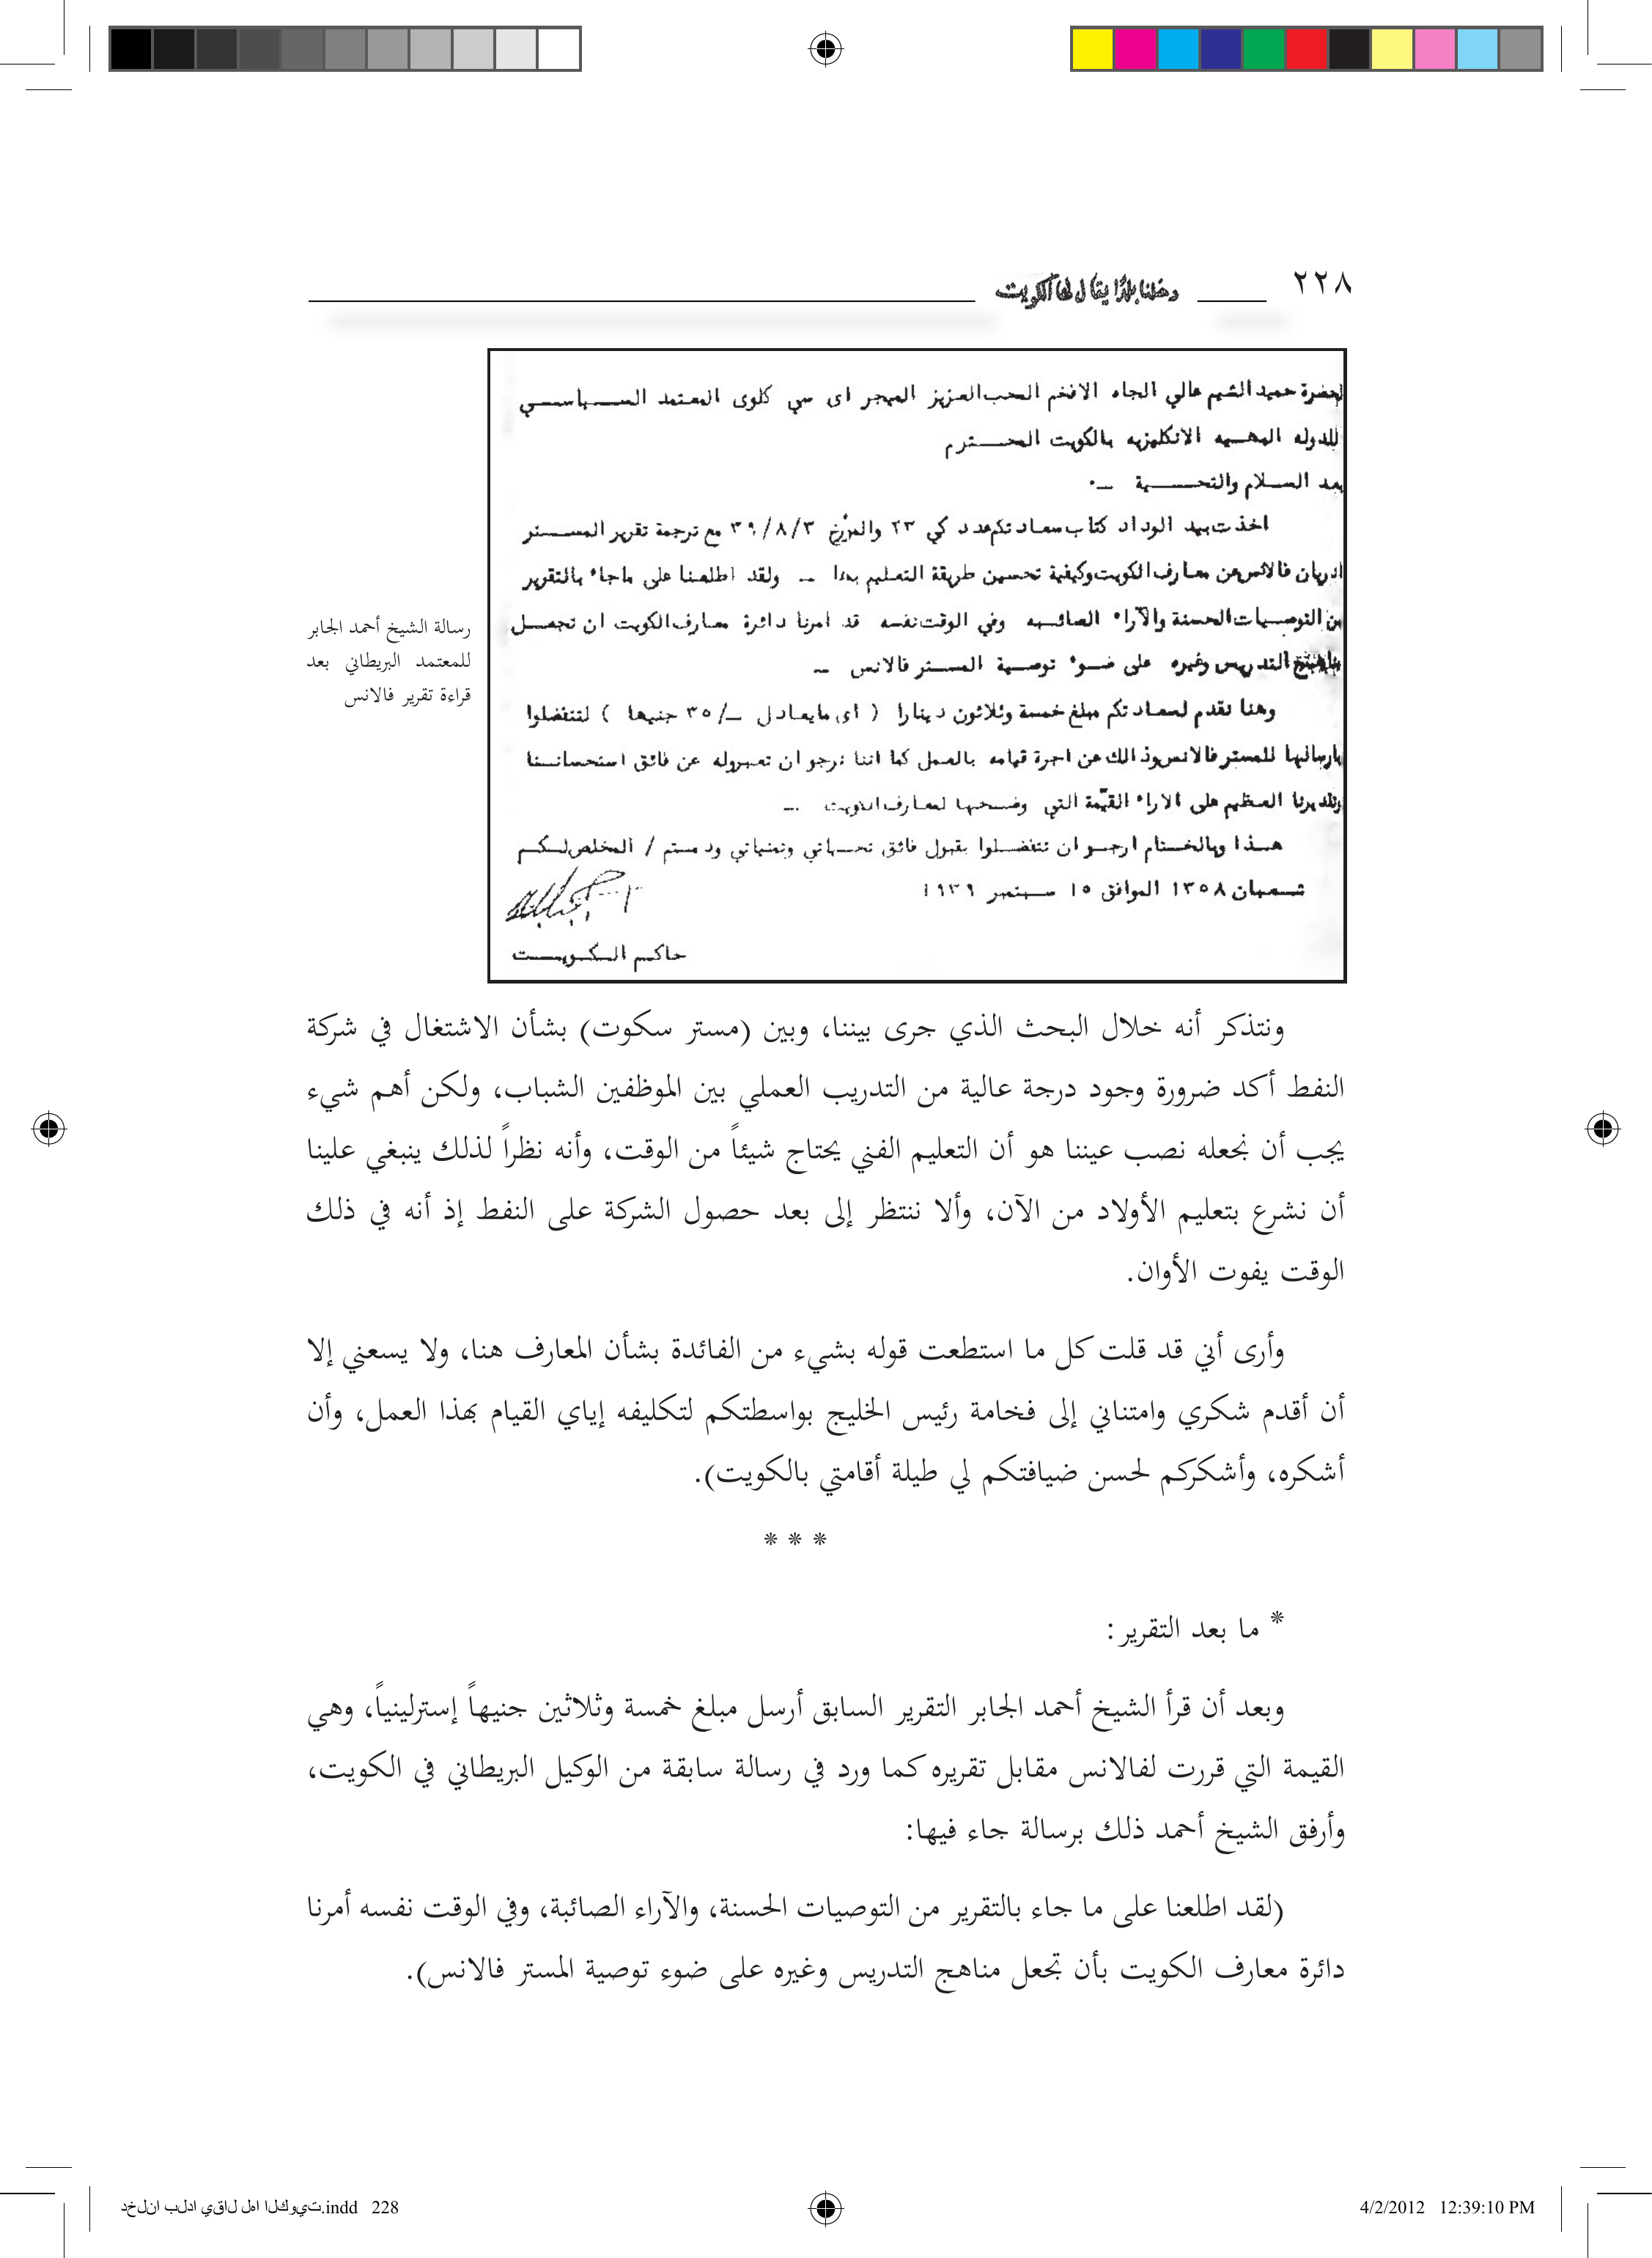 ٢٢٨
دخلنا بلدًا يقال لها الكويت
لحضرة حميد الشيم عالي الجاه الافخم المحب العزيز الميجر اى سي كلوى المعتمد السياسي
للدوله البهيه الانكليزيه بالكويت المحترم
بعد السلام والتحية ــ٠
اخذت بيد الوداد كتاب سعادتكم عدد كي ٢٣ والمؤرخ ٣٩/٨/٣ مع ترجمة تقرير المستر
ادريان فالانس عن معارف الكويت وكيفية تحسين طريقة التعليم بها ــ ولقد اطلعنا على ماجاء بالتقرير
من التوصيات الحسنة والآراء الصائبه وفي الوقت نفسه قد امرنا دائرة معارف الكويت ان تجعل
مناهج التدريس وغيره على ضوء توصية المستر فالانس ــ
وهنا نقدم لسعادتكم مبلغ خمسة وثلاثون دينارا ( اى مايعادل ــ/٣٥ جنيها ) لتتفضلوا
بارسالها للمستر فالانس وذالك عن اجرة قيامه بالعمل كما اننا نرجو ان تعبروله عن فائق استحساننا
وتقديرنا العظيم على الاراء القيّمة التي وضحها لمعارف الكويت ــ
هذا وبالختام ارجو ان تتفضلوا بقبول فائق تحياتي وتمنياتي ودمتم / المخلص لكم
شعبان ١٣٥٨ الموافق ١٥ سبتمبر ١٩٣٩
حاكم الكويت
رسالة الشيخ أحمد الجابر
للمعتمد البريطاني بعد
قراءة تقرير فالانس
ونتذكر أنه خلال البحث الذي جرى بيننا، وبين (مستر سكوت) بشأن الاشتغال في شركة
النفط أكد ضرورة وجود درجة عالية من التدريب العملي بين الموظفين الشباب، ولكن أهم شيء
يجب أن نجعله نصب عيننا هو أن التعليم الفني يحتاج شيئاً من الوقت، وأنه نظراً لذلك ينبغي علينا
أن نشرع بتعليم الأولاد من الآن، وألا ننتظر إلى بعد حصول الشركة على النفط إذ أنه في ذلك
الوقت يفوت الأوان.
وأرى أني قد قلت كل ما استطعت قوله بشيء من الفائدة بشأن المعارف هنا، ولا يسعني إلا
أن أقدم شكري وامتناني إلى فخامة رئيس الخليج بواسطتكم لتكليفه إياي القيام بهذا العمل، وأن
أشكره، وأشكركم لحسن ضيافتكم لي طيلة أقامتي بالكويت).
* * *
* ما بعد التقرير:
وبعد أن قرأ الشيخ أحمد الجابر التقرير السابق أرسل مبلغ خمسة وثلاثين جنيهاً إسترلينياً، وهي
القيمة التي قررت لفالانس مقابل تقريره كما ورد في رسالة سابقة من الوكيل البريطاني في الكويت،
وأرفق الشيخ أحمد ذلك برسالة جاء فيها:
(لقد اطلعنا على ما جاء بالتقرير من التوصيات الحسنة، والآراء الصائبة، وفي الوقت نفسه أمرنا
دائرة معارف الكويت بأن تجعل مناهج التدريس وغيره على ضوء توصية المستر فالانس).
دخلنا بلدا يقال لها الكويت.indd 228
4/2/2012 12:39:10 PM